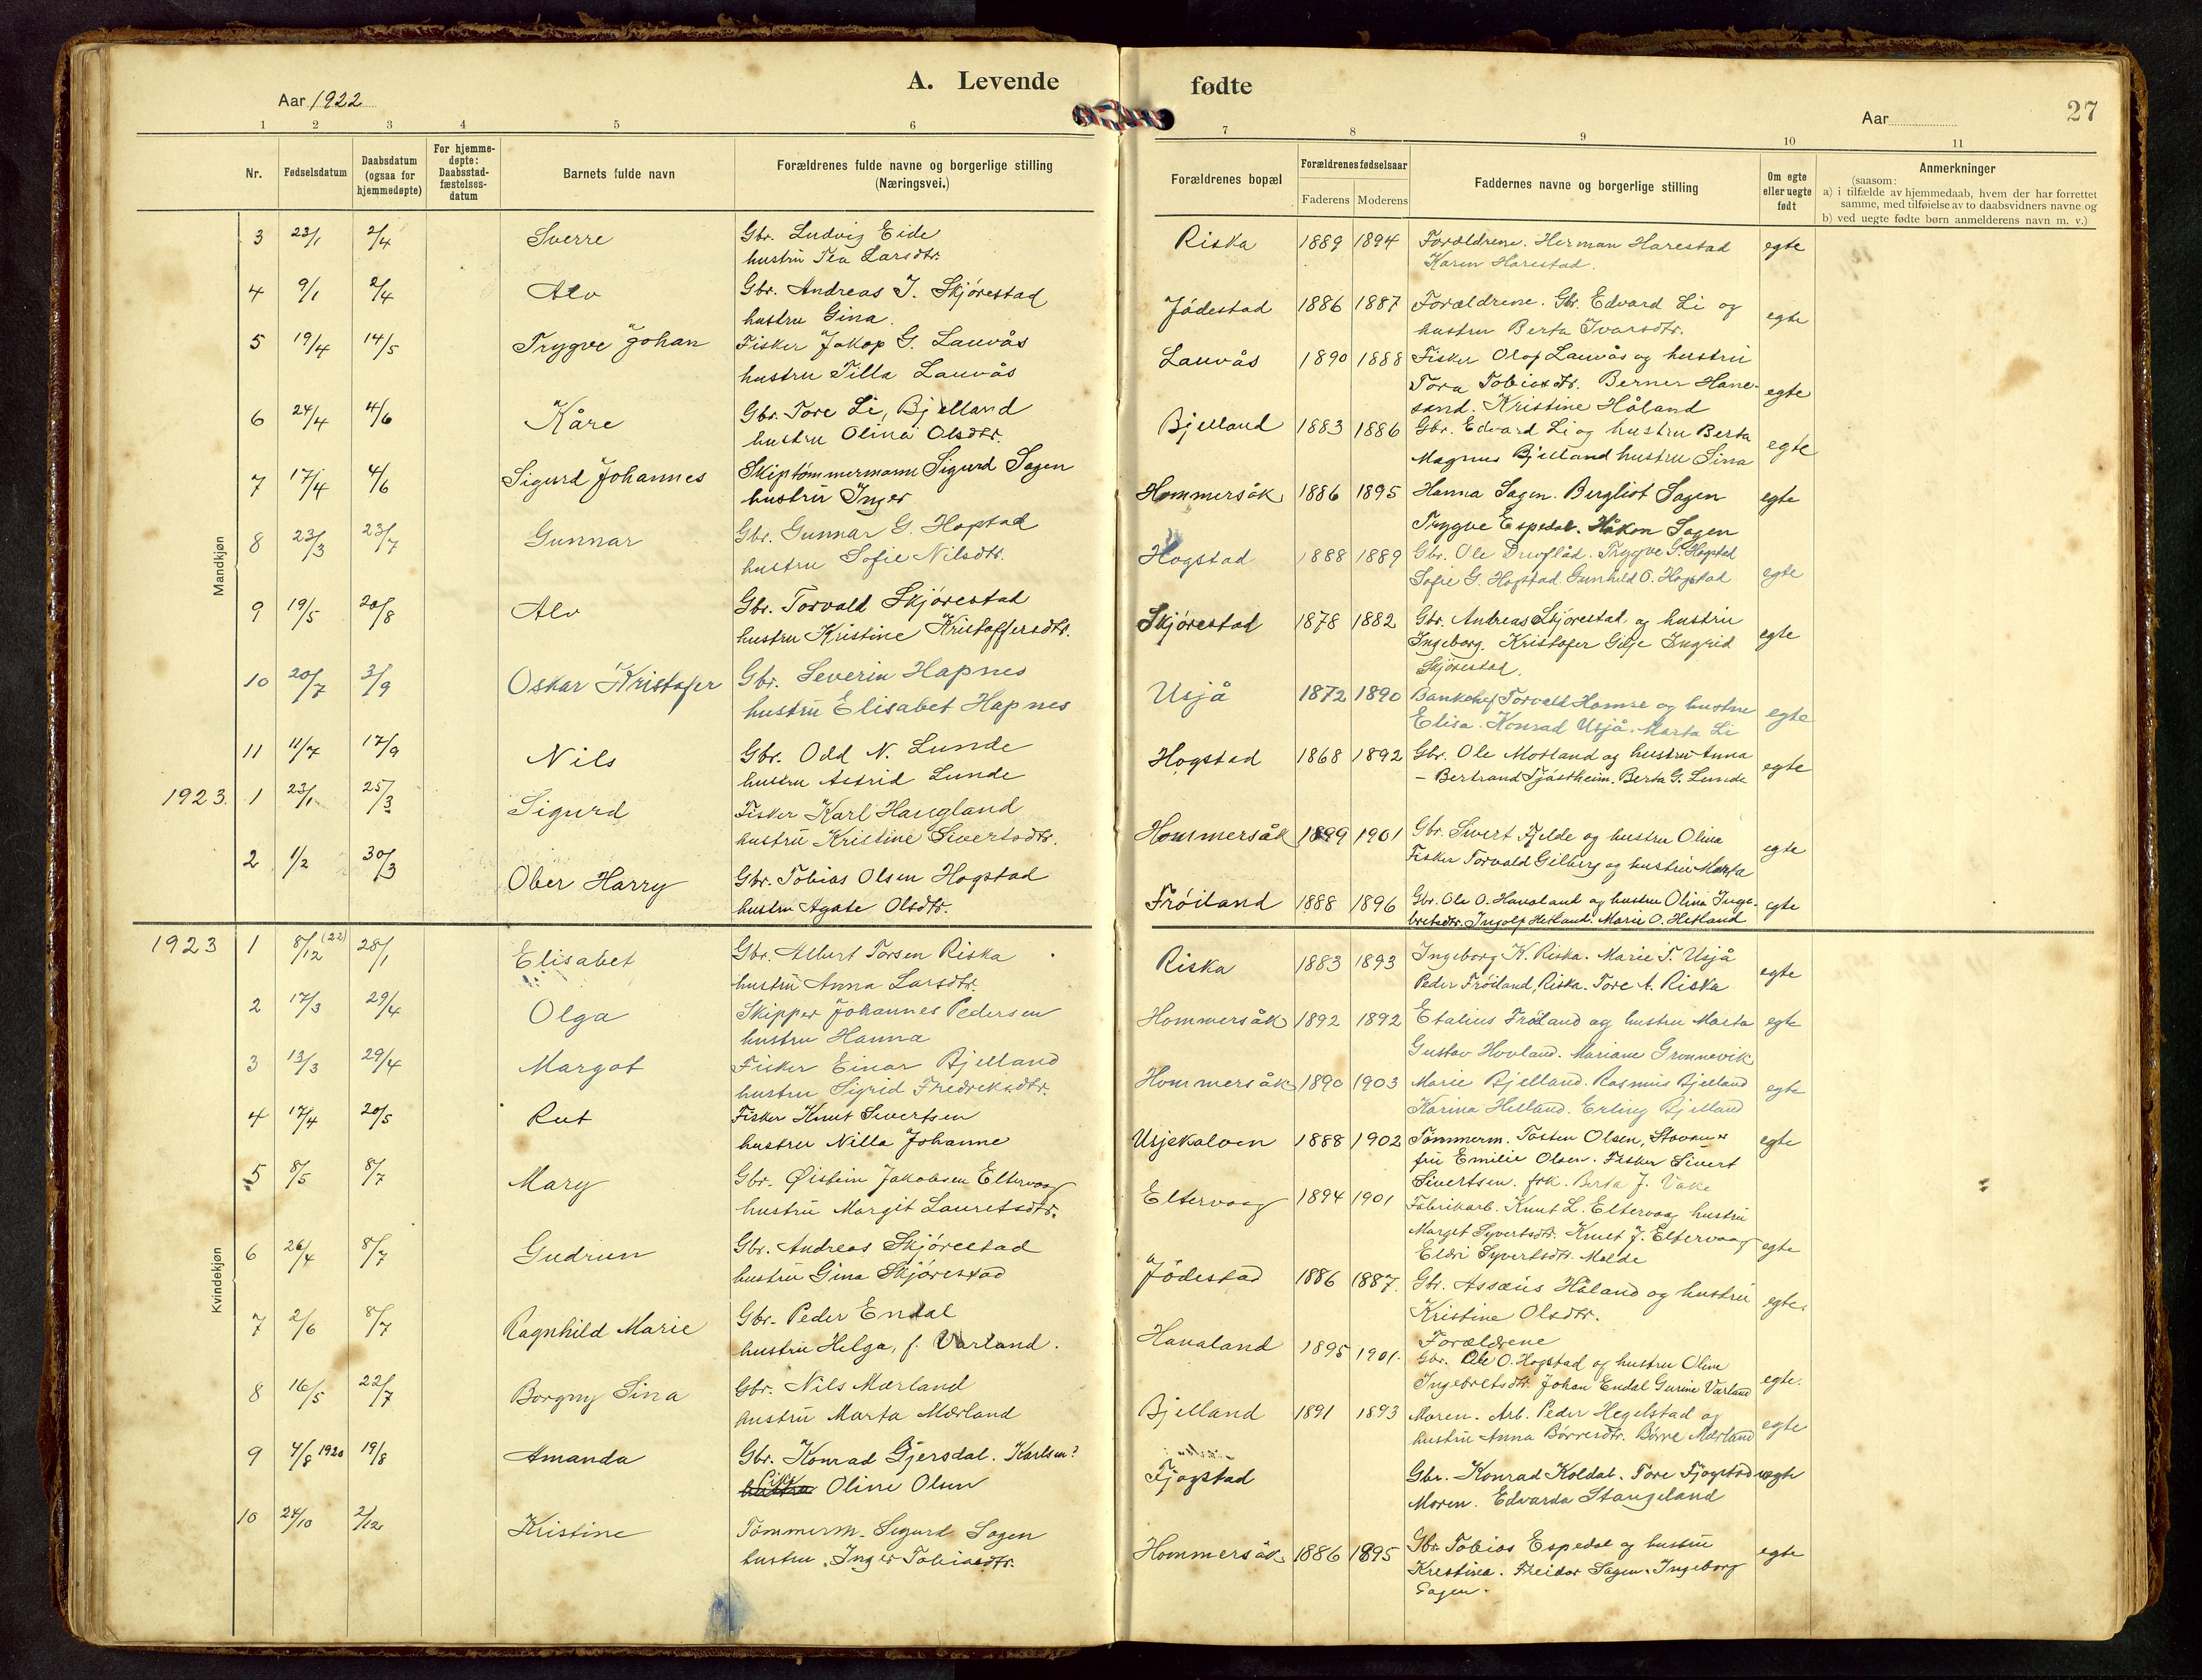 A. Levende fødte
27
Aar 1922
Aar
1 2 3 4 5 6 7 8 9 10 11
Nr.
Fødselsdatum
Daabsdatum
(ogsaa for
hjemmedøpte)
For hjemme-
døpte:
Daabsstad-
fæstelses-
datum
Barnets fulde navn
Forældrenes fulde navne og borgerlige stilling
(Næringsvei.)
Forældrenes bopæl
Forældrenes fødselsaar
Faderens Moderens
Faddernes navne og borgerlige stilling
Om egte
eller uegte
født
Anmerkninger
(saasom:
a) i tilfælde av hjemmedaab, hvem der har forrettet
samme, med tilføielse av to daabsvidners navne og
b) ved uegte fødte børn anmelderens navn m. v.)
Mandkjøn
3 23/1 2/4 Sverre Gbr. Ludvig Eide Riska 1889 1894 Forældrene. Herman Harestad egte
hustru Tea Larsdtr. Karen Harestad.
4 9/1 2/4 Alv Gbr. Andreas J. Skjørestad Jødestad 1886 1887 Forældrene. Gbr. Edvard Li og egte
hustru Gina. hustru Berta Ivarsdtr.
5 19/4 14/5 Trygve Johan Fisker Jakop G. Lauvås Lauvås 1890 1888 Fisker Olaf Lauvås og hustru egte
hustru Tilla Lauvås Tora Tobiasdtr. Berner Hane-
sand. Kristine Håland
6 24/4 4/6 Kåre Gbr. Tore Li, Bjelland Bjelland 1883 1886 Gbr. Edvard Li og hustru Berta egte
hustru Olina Olsdtr. Magnus Bjelland hustru Sina
7 17/4 4/6 Sigurd Johannes Skiptømmermann Sigurd Sagen Hommersåk 1886 1895 Hanna Sagen. Bergliot Sagen egte
hustru Inger Trygve Espedal. Håkon Sagen
8 23/3 23/7 Gunnar Gbr. Gunnar G. Hogstad Hogstad 1888 1889 Gbr. Ole Trygve G. Hogstad egte
hustru Sofie Nilsdtr. Sofie G. Hogstad. Gunhild O. Hogstad
9 19/5 20/8 Alv Gbr. Torvald Skjørestad Skjørestad 1878 1882 Gbr. Andreas Skjørestad og hustru egte
hustru Kristine Kristoffersdtr. Ingeborg. Kristofer Gilje Ingrid
Skjørestad.
10 20/7 3/9 Oskar Kristofer Gbr. Severin Hapnes Usjå 1872 1890 Bankchef Torvald Homse og hustru egte
hustru Elisabet Hapnes Elisa. Konrad Usjå. Marta Li
11 11/7 17/9 Nils Gbr. Odd N. Lunde Hogstad 1868 1892 Gbr. Ole Motland og hustru Anna egte
hustru Astrid Lunde – Bertrand Tjåstheim. Berta G. Lunde
1923. 1 23/1 25/3 Sigurd Fisker Karl Haugland Hommersåk 1899 1901 Gbr. Sivert Fjelde og hustru Olina egte
hustru Kristine Sivertsdtr. Fisker Torvald Gilberg og hustru Marta
2 1/2 30/3 Ober Harry Gbr. Tobias Olsen Hogstad Frøiland 1888 1896 Gbr. Ole O. Hanaland og hustru Olina Inge- egte
hustru Agate Olsdtr. bretsdtr. Ingolf Hetland. Marie O. Hetland
Kvindekjøn
1923 1 8/12 (22) 28/1 Elisabet Gbr. Albert Torsen Riska Riska 1883 1893 Ingeborg K. Riska. Marie T. Usjå egte
hustru Anna Larsdtr. Peder Frøiland, Riska. Tore A. Riska
2 17/3 29/4 Olga Skipper Johannes Pedersen Hommersåk 1892 1892 Etalius Frøiland og hustru Marta egte
hustru Hanna Gustav Hovland. Mariane Grønnevik
3 13/3 29/4 Margot Fisker Einar Bjelland Hommersåk 1890 1903 Marie Bjelland. Rasmus Bjelland egte
hustru Sigrid Fredriksdtr. Karina Helland. Erling Bjelland
4 17/4 20/5 Rut Fisker Knut Sivertsen Usjekalven 1888 1902 Tømmerm. Tosten Olsen, Stavanger egte
hustru Nilla Johanne fru Emilie Olsen. Fisker Sivert
Sivertsen. frk. Berta J. Vake
5 8/5 8/7 Mary Gbr. Øistein Jakobsen Eltervaag Eltervaag 1894 1901 Fabrikarb. Knut L. Eltervaag hustru egte
hustru Margit Lauretsdtr. Marget Syvertsdtr. Knut J. Eltervaag
Eldri Syvertsdtr. Molde
6 26/4 8/7 Gudrun Gbr. Andreas Skjørestad Jødestad 1886 1887. Gbr. Assæus Håland og hustru egte.
hustru Gina Skjørestad Kristine Olsdtr.
Forældrene
7 2/6 8/7 Ragnhild Marie Gbr. Peder Endal Hanaland 1895 1901. Gbr. Ole O. Hogstad og hustru Oline egte.
hustru Helga, f. Varland. Ingebretsdtr. Johan Endal Gurine Varland
8 16/5 22/7 Borgny Sina Gbr. Nils Mærland Bjelland 1891 1893 Moren. Arb. Peder Hegelstad og egte
hustru Marta Mærland hustru Anna Børresdtr. Børre Mærland
9 4/8 1920 19/8 Amanda Gbr. Konrad Gjersdal. Karlsen? Fjogstad Gbr. Konrad Koldal. Tore Fjogstad uegte
Pike Oline Olsen Moren. Edvarda Stangeland
10 24/10 2/12 Kristine Tømmerm. Sigurd Sagen Hommersåk 1886 1895 Gbr. Tobias Espedal og hustru egte
hustru Inger Tobiasdtr. Krestine. Freidar Sagen. Ingeborg
Sagen.